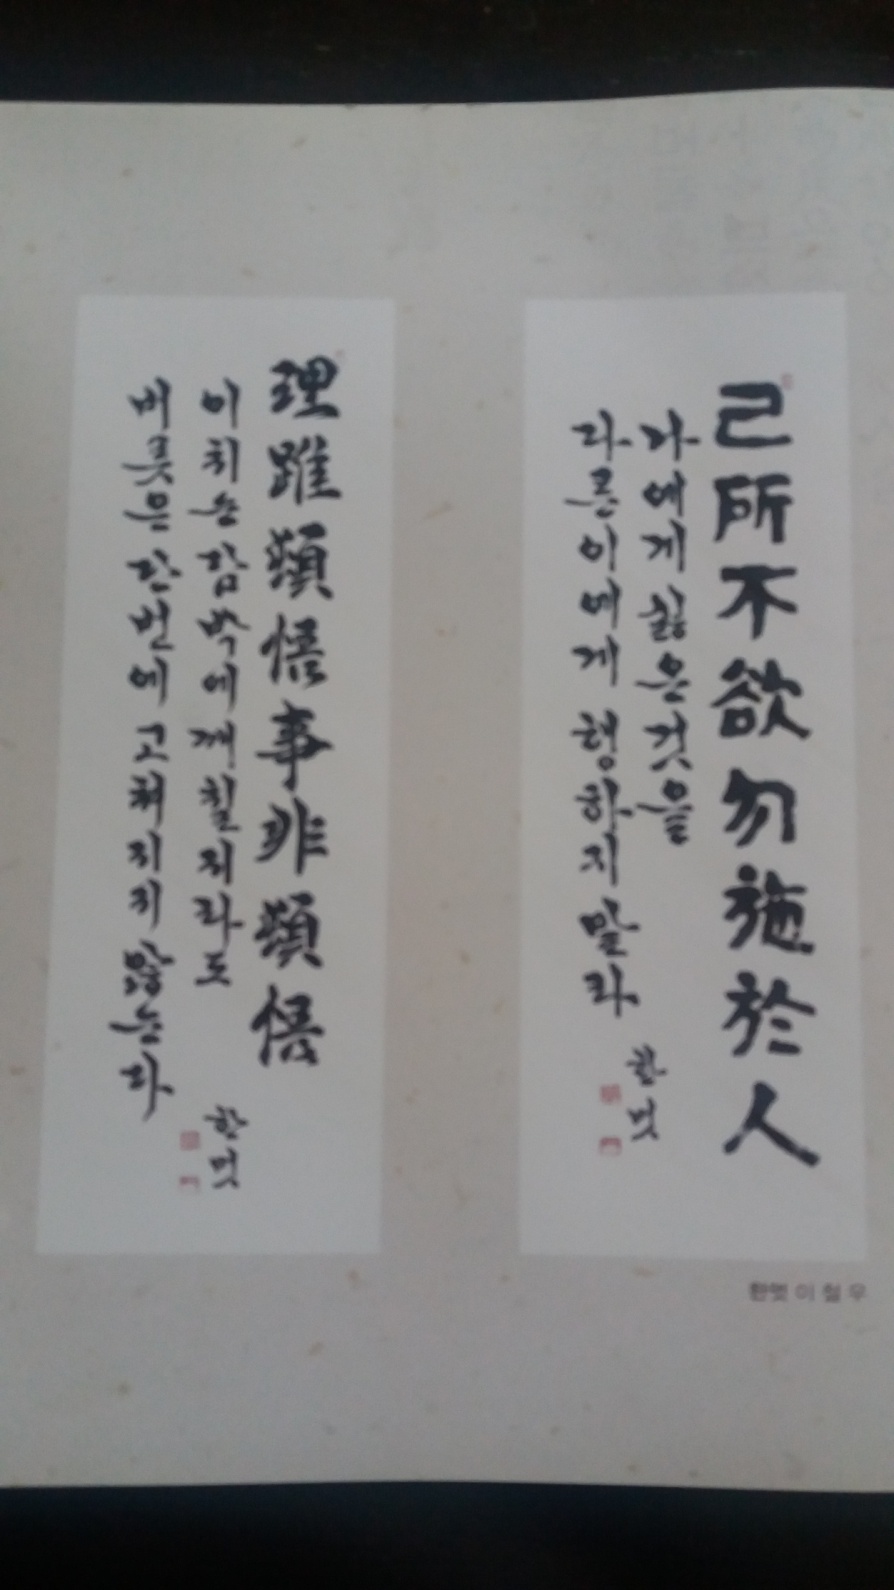 己所不欲勿施於人
나에게 싫은것을
다른이에게 행하지말라
한멋
理雖頓悟事非頓悟
이치는 함박에 깨칠지라도
버릇은 단번에 고쳐지지 않는다
한멋
한멋 이 철 우